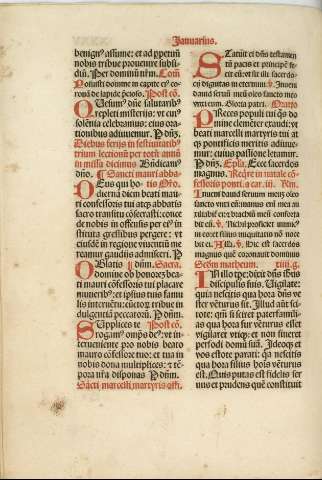 Januarius.
benigno assume: et ad ppetuū
nobis tribue prouenire subsi-
diū. Per dominū nrm̄.
Posuisti domine in capite eius co-
ronā de lapide p̄cioso. Postcō.
repleti misterijs: vt cuius
solēnia celebramus: eius ora-
tionibus adiuuemur. P dñm.
Diebus ferijs in festiuitatib'
trium lectionū per totū annū
in missa dicimus Bn̄dicam'
dn̄o. Sancti mauri abba-
Deus qui ho- tis Oro.
dierna diem beati mauri
confessoris tui atq3 abbatis
sacro transitu cōsecrasti: conce
de nobis in offensis per ei' in
stituta gressibus pergere: vt
eiusdē in regione viuentiū me
reamur gaudijs admisceri. P
Oblatis dn̄m. Secrē.
domine ob honorē bea-
ti mauri cōfessoris tui placare
muneribus: et ipsius tuis famu
lis interuētu: cūctorū tribue in
dulgentiā peccatorū. P dñm.
Supplices te Postcō.
rogam' omps de': vt in-
terueniente pro nobis beato
mauro cōfessore tuo: et tua in
nobis dona multiplices: et tē-
pora nr̄a disponas P dñm.
Sācti marcelli martyris offi.
Statuit ei dn̄s testamen
tū pacis et principē fe-
cit eū: vt sit illi sacerdo
cij dignitas in eternum. Inueni
dauid seruū meū oleo sancto meo
vnxi eum. Gloria patri. Oratio
Preces populi tui qs̄ do
mine clementer exaudi: vt
beati marcelli martyris tui at
q3 pontificis meritis adiuue-
mur: cuius passione letamur. P
dñm. Epl'a. Ecce sacerdos
magnus. Reqre in natale cō-
fessoris ponti.
Inueni dauid seruum meū: oleo
sancto vnxi eū: manus em̄ mea au
xiliabit ei: et brachiū meū conforta
bit eū. Nichil proficiet inimic'
in eo: et filius iniquitatis nō noce
bit ei. All'a. Hic est sacerdos
magnus quē coronauit dominus
Scd'm matheum.
In illo tpe: Dixit dn̄s Jhs̄
discipulis suis. Vigilate:
quia nescitis qua hora dn̄s ve
ster vēturus sit. Illud aūt sci-
tote: qm̄ si sciret paterfamili-
as qua hora fur vēturus esset
vigilaret vtiq3: et non sineret
perfodi domū suā. Ideoq3 et
vos estote parati: qa nescitis
qua hora filius hoīs vēturus
est. Quis putas est fidelis ser
uus et prudens quē constituit